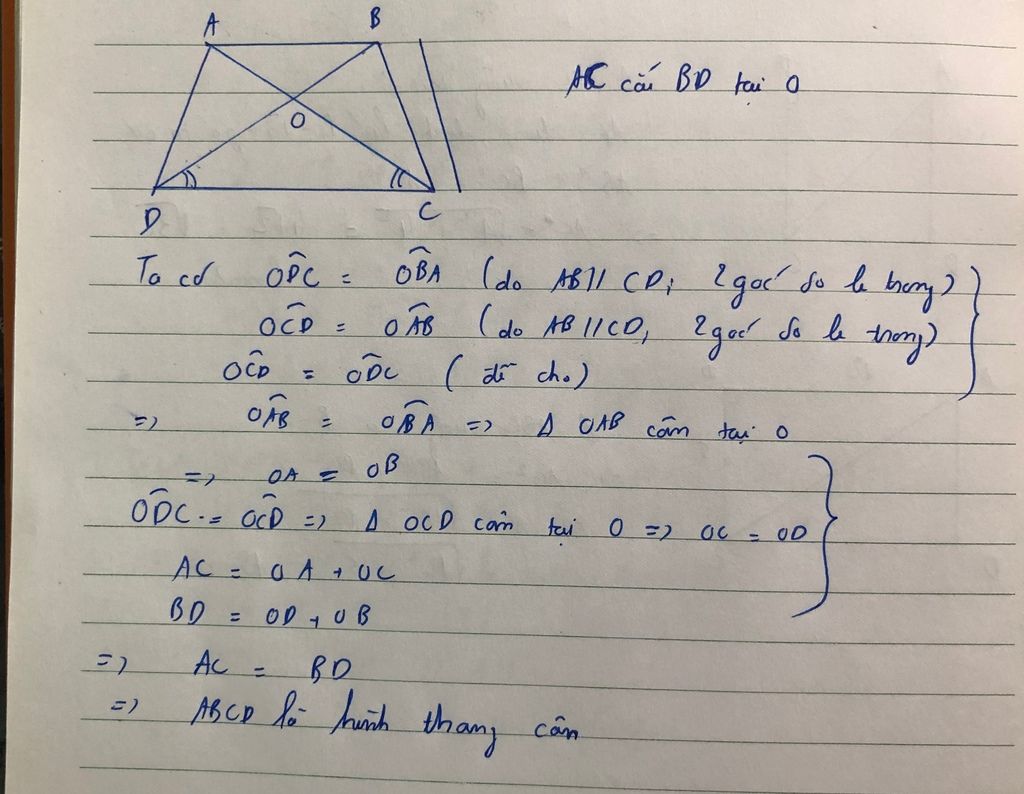 A B
AC cắt BD tại O
O
D C
Ta có ODC = OBA (do AB // CD, 2 góc so le trong)
OCD = OAB (do AB // CD, 2 góc so le trong)
OCD = ODC (đề cho)
=> OAB = OBA => Δ OAB cân tại O
=> OA = OB
ODC = OCD => Δ OCD cân tại O => OC = OD
AC = OA + OC
BD = OD + OB
=> AC = BD
=> ABCD là hình thang cân